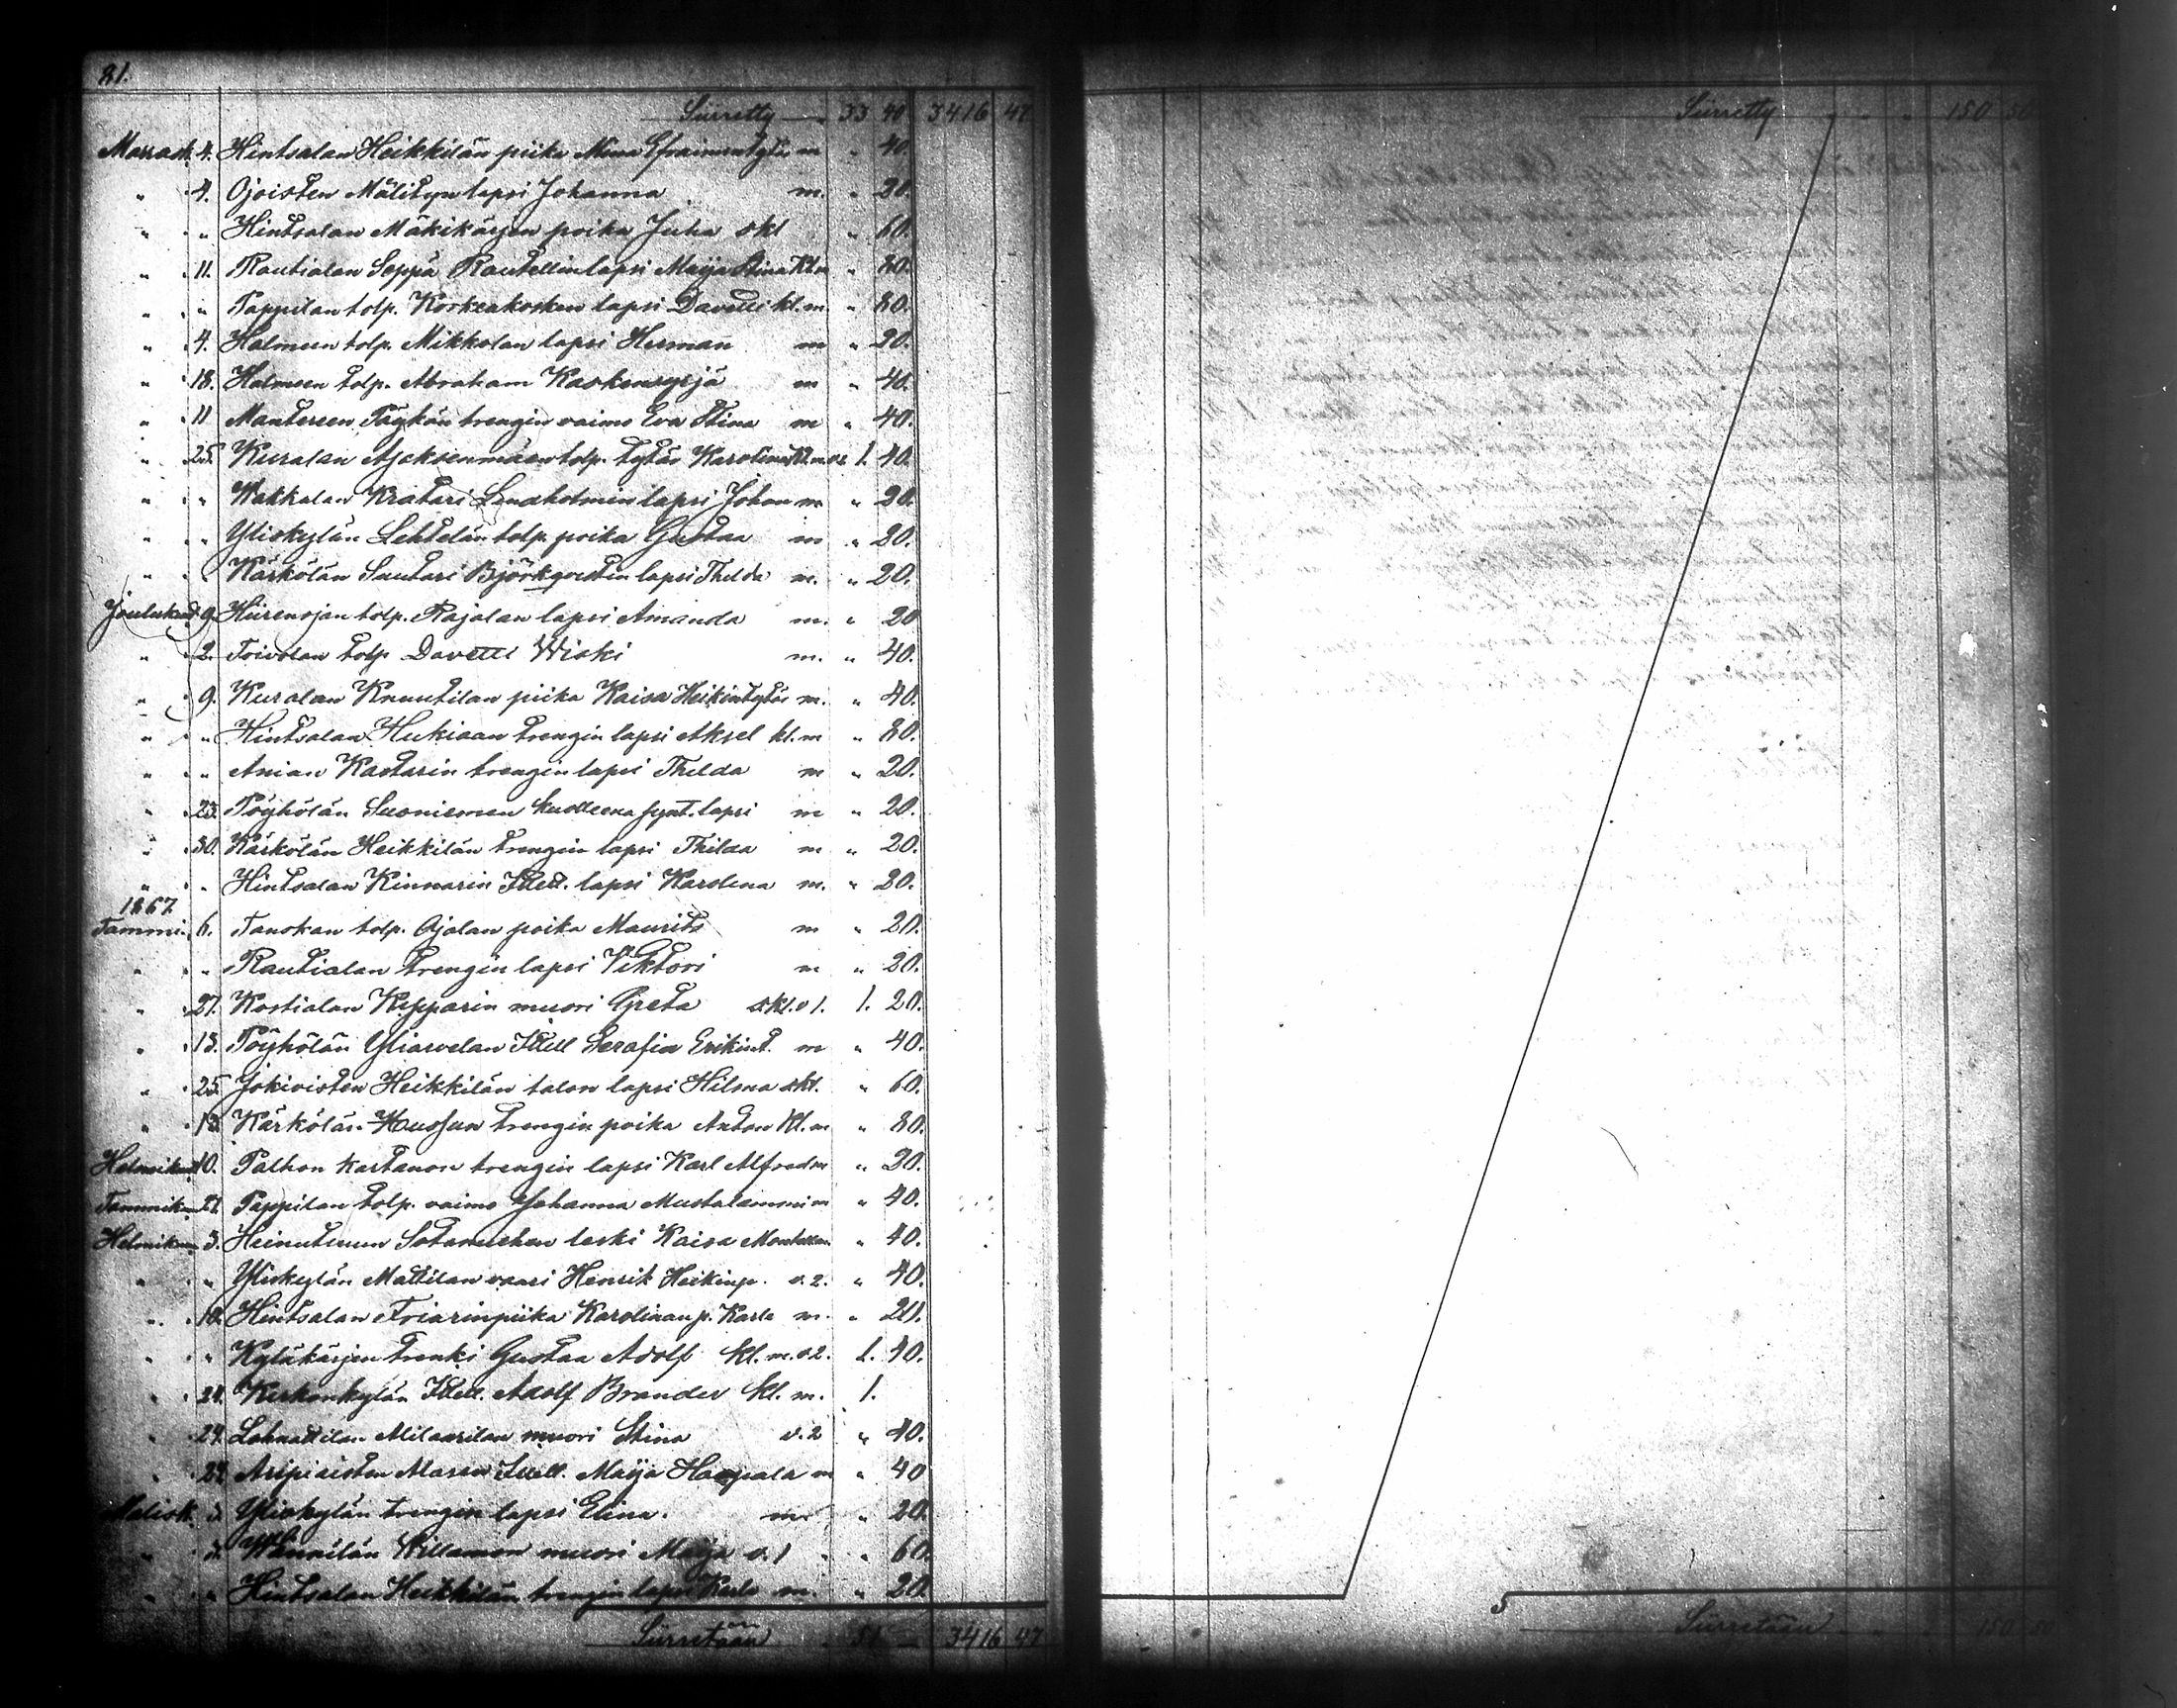 81.
Siirretty 33 40 3416 47
Marrask. 4. Hintsalan Heikkilän piika Mina Efraimintytär m " 40.
" 4. Ojoisten Mälityn lapsi Johanna m. " 20.
" " Hintsalan Mäkikärjen poika Juha skl " 60.
" 11. Rautialan Seppä Rautellin lapsi Maija Stina Kl.m " 80.
" " Pappilan tolp. Korkeakosken lapsi Davetti kl.m. " 80.
" 4. Halmeen tolp. Mikkolan lapsi Herman m " 20.
" 18. Halmeen tolp. Abraham Kaskensyrjä m " 40.
" 11 Mantereen Päykön trengin vaimo Eva Stina m " 40.
" 25. Kuralan tolp. tytär Karolina 1. 40.
" " Wakkalan Krätäri lapsi Johan m " 20.
" " Yliskylän Lehtelän tolp. poika Gustaa m " 20.
" " Kärkölän Suutari Björkqvistin lapsi Thilda m. " 20.
Jouluku 9. Hiirenojan tolp. Rajalan lapsi Amanda m. " 20
" 2. Toivolan tolp Davetti Wiski m. " 40.
" 9. Kuralan Knuutilan piika Kaisa Heikintytär m. " 40.
" " Hintsalan Hukiaan trengin lapsi Aksel kl.m " 80.
" " Anian Kartarin trengin lapsi Thilda m " 20.
" 23. Pöyhölän Suoniemen kuolleena synt. lapsi m " 20.
" 30. Kärkölän Heikkilän trengin lapsi Thilda m " 20.
" " Hintsalan Kinnarin Itell. lapsi Karolina m. " 20.
1867
Tammi. 6. Tanskan tolp. Ojalan poika Maurits m " 20.
" " Rautialan trengin lapsi Viktori m " 20.
" 27. Kostialan Kepparin muori Greta skl. v 1. 1. 20.
" 13. Pöyhölän Yliarvelan Itell Serafia Erikint. m " 40.
" 25. Jokioisten Heikkilän talon lapsi Hilma skl. " 60.
" 13. Kärkölän Haussun trengin poika Anton Kl.m " 80.
Helmikuu 10. Palhon kartanon trengin lapsi Karl Alfred m " 20.
Tammikuu 27. Pappilan tolp. vaimo Johanna Mustalammi m " 40.
Helmikuu 3. leski Kaisa " 40.
" " Yliskylän Mattilan vaari Henrik Heikinp. v. 2. " 40.
" 10. Hintsalan piika Karolinan p. Karle m. " 20.
" " Kyläkärjen trenki Gustaa Adolf kl. m. v 2. 1. 40.
" 24. Kirkonkylän Itell. Adolf Brander kl. m. 1.
" 24. Lahnattilan muori Stina v. 2 " 40.
" 24. Itell. Maija Haapala m " 40
Malisk. 3. Yliskylän trengin lapsi Elina. m. " 20.
" 3. Willamon muori Maija v. 1 " 60.
" " Hintsalan Heikkilän trengin lapsi Karle m. " 20.
Siirretään 51 — 3416 47
Siirretty " " " 150 50
Siirretään " " " 150 50